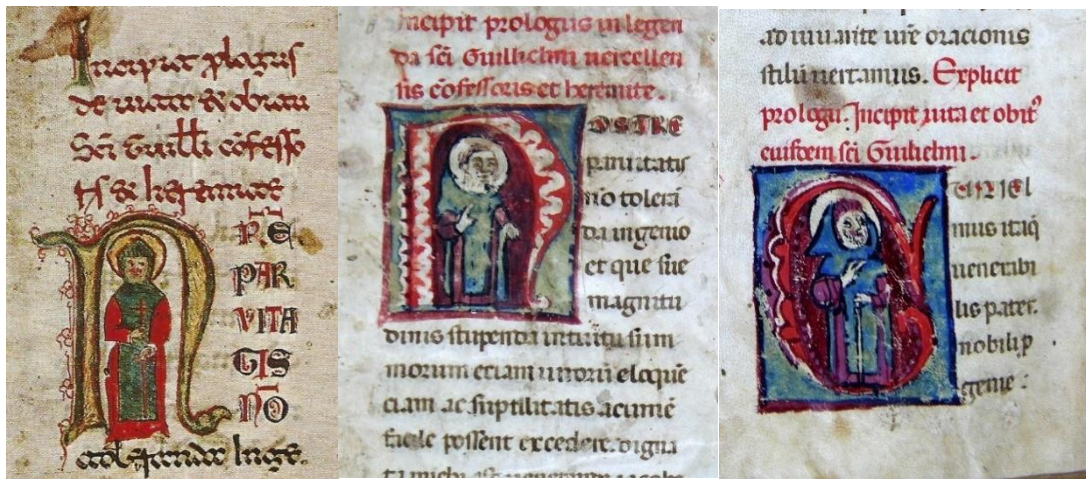 Incipit plogus
de uita & obitu
Sci Guilli cofesso
ris & heremite
N
RE
PAR
VITA
TIS
NO
toleranda inge
Incipit prologus in legen
da sci Guillielmi uercellen
sis cofessoris et heremite.
OSTRE
paruitatis
no tolera
da ingenio
et que sue
magnitu
dinis stupenda intuitu sum
morum etiam uirorū eloque
ciam ac suptilitatis acumē
facile possent excedere. digna
ad iuuante ure oracionis
stilū uertamus. Explicit
prologu. Incipit uita et obit⁹
eiusdem sci Guilielmi.
G
UILIEL
mus itaq
uenerabi
lis pater.
nobili p
genie :